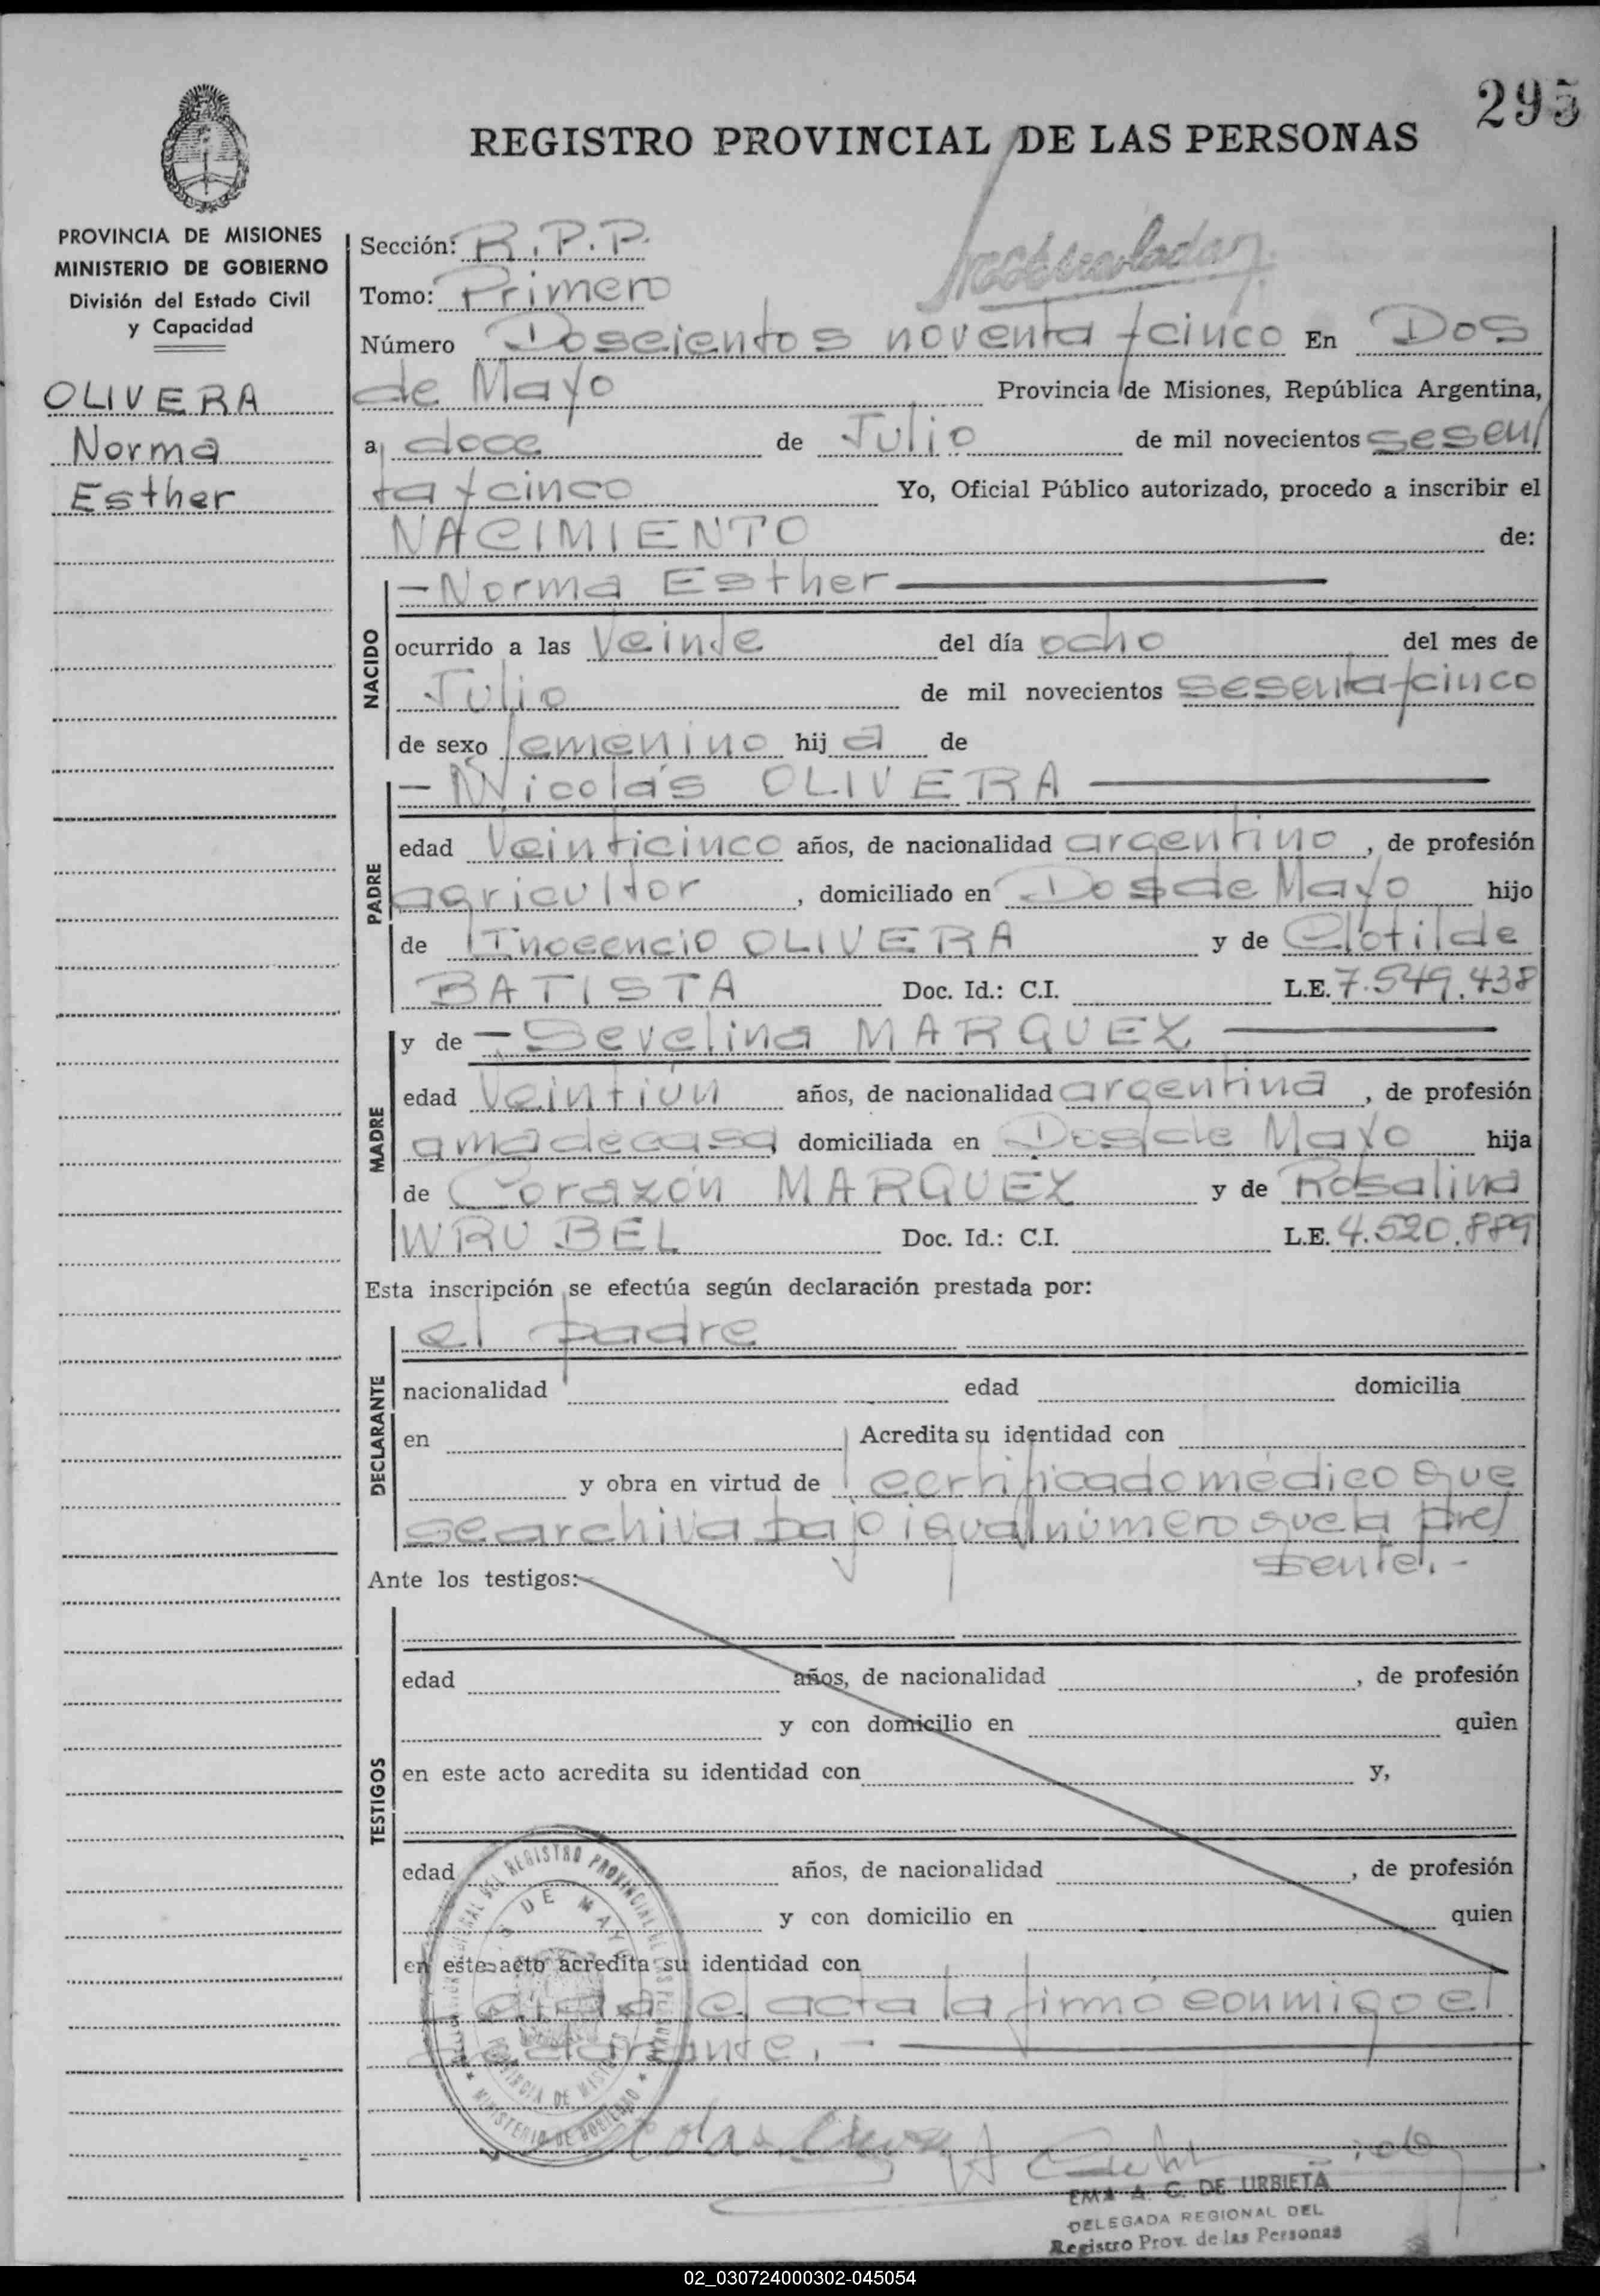 295
REGISTRO PROVINCIAL DE LAS PERSONAS
PROVINCIA DE MISIONES
MINISTERIO DE GOBIERNO
División del Estado Civil
y Capacidad
OLIVERA
Norma
Esther
Sección: R.P.P.
Tomo: Primero
Número Doscientos noventa y cinco En Dos
de Mayo Provincia de Misiones, República Argentina,
a doce de Julio de mil novecientos sesen/
ta y cinco Yo, Oficial Público autorizado, procedo a inscribir el
NACIMIENTO de:
NACIDO
— Norma Esther —
ocurrido a las Veinte del día ocho del mes de
Julio de mil novecientos sesenta y cinco
de sexo femenino hija de
PADRE
— Nicolás OLIVERA —
edad Veinticinco años, de nacionalidad argentino, de profesión
agricultor, domiciliado en Dos de Mayo hijo
de Inocencio OLIVERA y de Clotilde
BATISTA Doc. Id.: C.I. L.E. 7.549.438
MADRE
y de — Sevelina MARQUEZ —
edad Veintiún años, de nacionalidad argentina, de profesión
ama de casa, domiciliada en Dos de Mayo hija
de Corazón MARQUEZ y de Rosalina
WRUBEL Doc. Id.: C.I. L.E. 4.520.889
Esta inscripción se efectúa según declaración prestada por:
DECLARANTE
el padre
nacionalidad edad domicilia
en Acredita su identidad con
y obra en virtud de certificado médico que
se archiva bajo igual número que la pre/
sente.-
Ante los testigos:
TESTIGOS
edad años, de nacionalidad , de profesión
y con domicilio en quien
en este acto acredita su identidad con y,
edad años, de nacionalidad , de profesión
y con domicilio en quien
en este acto acredita su identidad con
Leída el acta la firmó conmigo el
declarante. —
REGISTRO PROVINCIAL DE LAS PERSONAS
DE MAYO
PROVINCIA DE MISIONES
MINISTERIO DE GOBIERNO
EMA A. G. DE URBIETA
DELEGADA REGIONAL DEL
Registro Prov. de las Personas
02_030724000302-045054